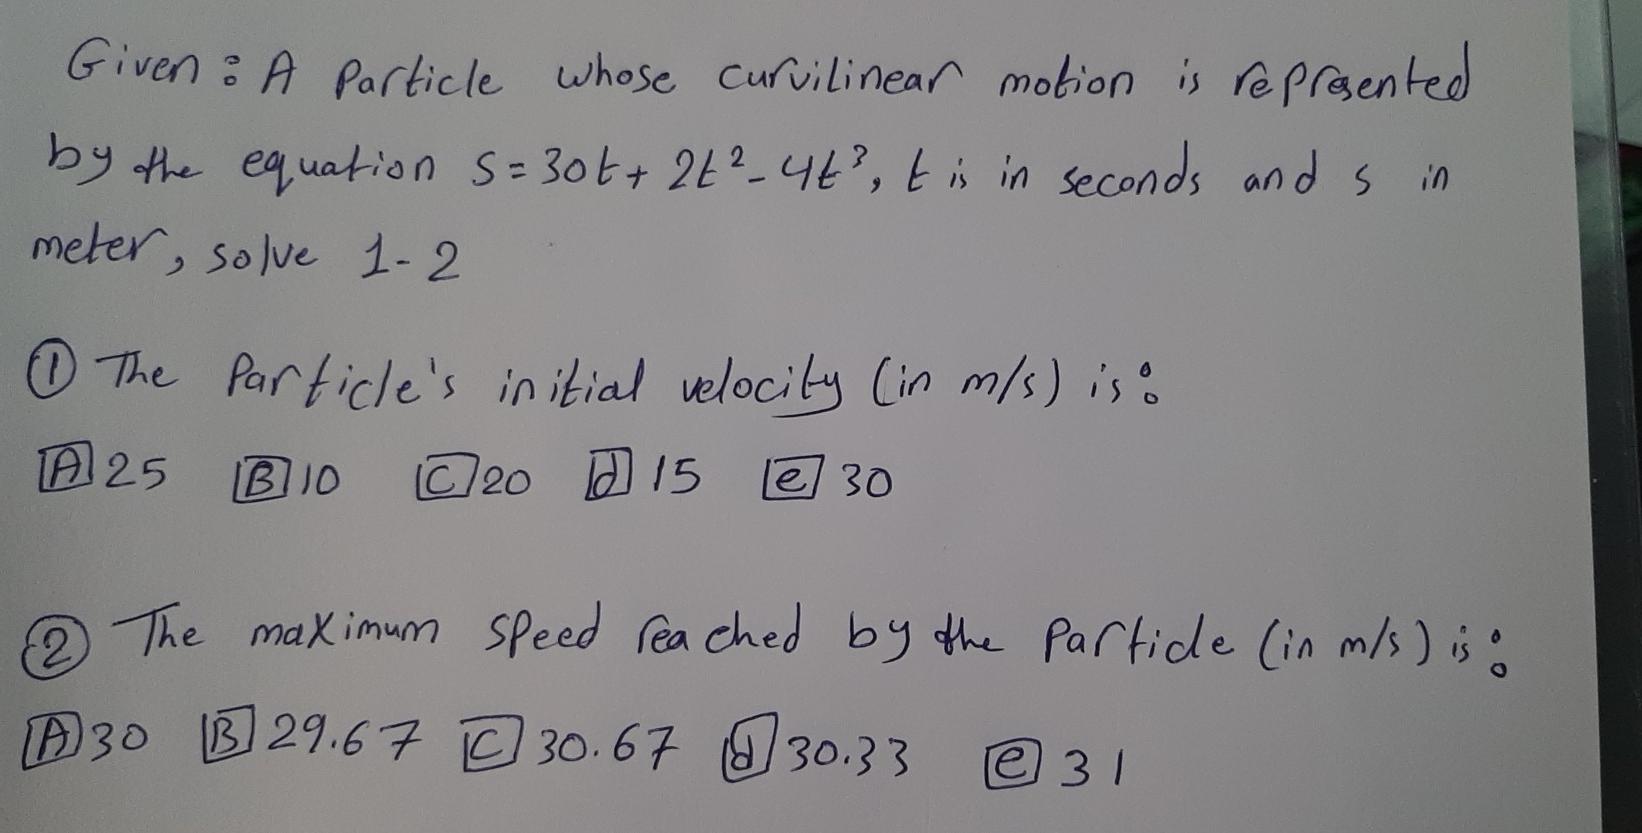 Given: A Particle whose curvilinear motion is represented
by the equation S=30t+ 2t²-4t³, t is in seconds and s in
meter, solve 1-2
① The Particle's initial velocity (in m/s) is:
A 25 B 10 C 20 d 15 e 30
② The maximum speed reached by the Particle (in m/s) is:
A 30 B 29.67 C 30.67 d 30.33 e 31